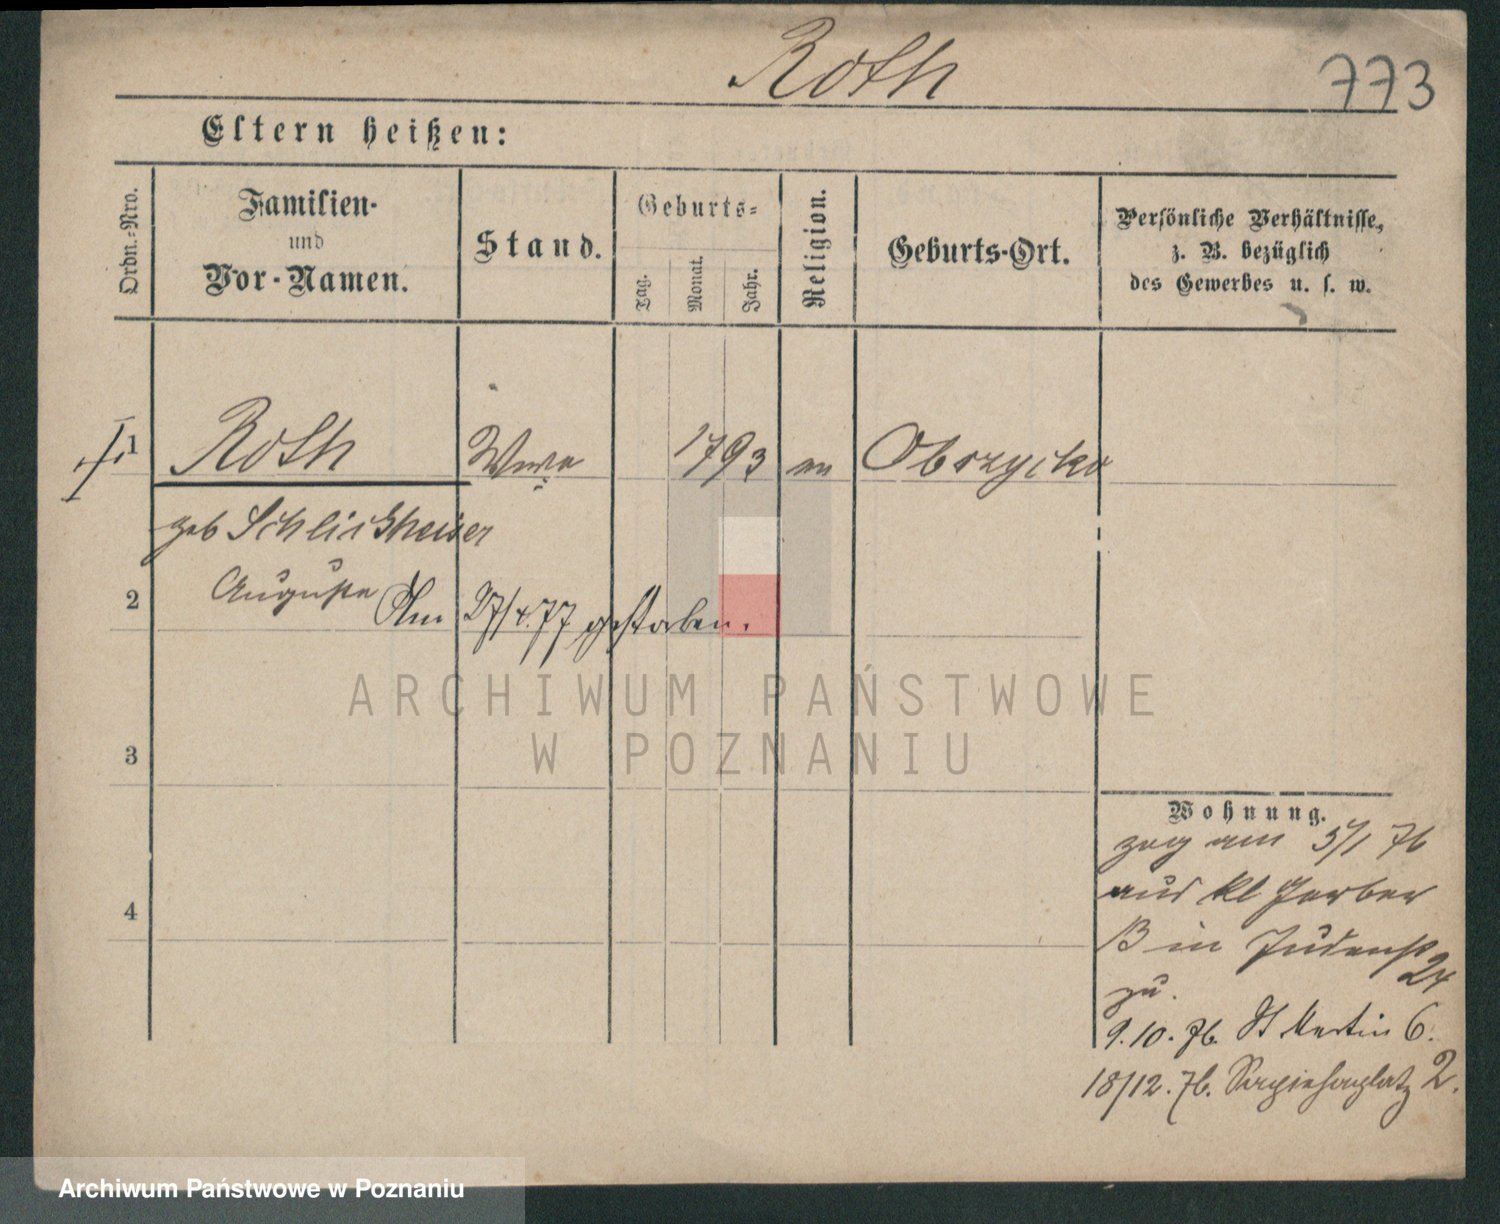 Roth
773
Eltern heißen:
Ordn.-Nro.
Familien-
und
Vor-Namen.
Stand.
Geburts-
Tag.
Monat.
Jahr.
Religion.
Geburts-Ort.
Persönliche Verhältnisse,
z. B. bezüglich
des Gewerbes u. s. w.
1 Roth Wwe 1793 ev Obrzycko
geb
2 Auguste Am 27/4.77 gestorben.
ARCHIWUM PAŃSTWOWE
W POZNANIU
3
4
Wohnung.
zog am 5/1 76
aus kl Gerber
β in Judenst
24
zu.
9.10.76. St Martin 6.
18/12.76. Sapiehaplatz 2.
Archiwum Państwowe w Poznaniu